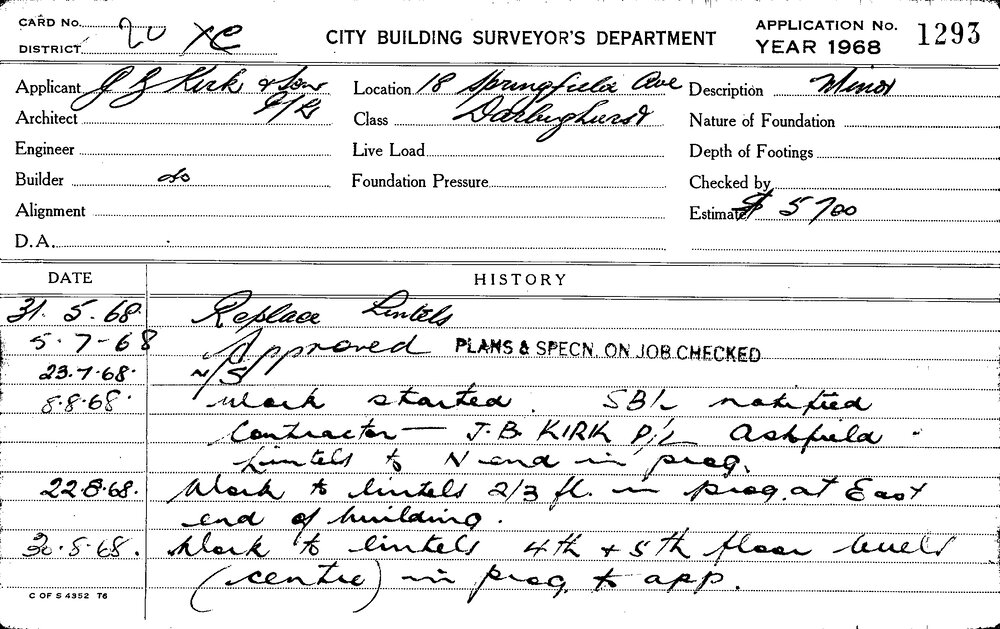 CARD No. 20 XC
DISTRICT
CITY BUILDING SURVEYOR'S DEPARTMENT
APPLICATION No. 1293
YEAR 1968
Applicant J B Kirk & Son Location 18 Springfield Ave Description Minor
P/L
Architect Class Darlinghurst Nature of Foundation
Engineer Live Load Depth of Footings
Builder do Foundation Pressure Checked by
Alignment Estimate $ 5700
D.A.
DATE HISTORY
31. 5. 68. Replace Lintels
5-7-68 Approved PLANS & SPECN. ON JOB CHECKED
23.7.68. N/S
8.8.68. Work started. SBL notified
Contractor — J.B. KIRK P/L Ashfield.
Lintels to N end in prog.
22.8.68. Work to lintels 2/3 fl. in prog. at East
end of building.
30.8.68. Work to lintels 4th + 5th floor levels
(centre) in prog. to app.
C OF S 4352 T6